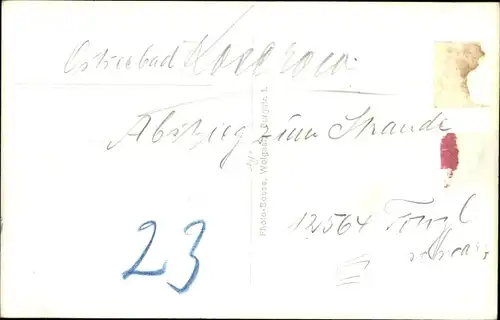 Ostseebad Koserow
Abstieg zum Strande
Photo-Basse, Wolgast, Burgstr. 1.
12564
23